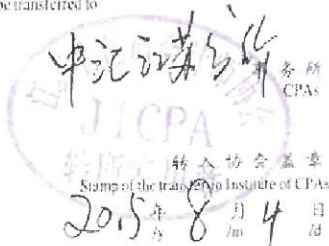 be transferred to
中汇江苏分所
务所
CPAs
JICPA
转入协会盖章
Stamp of the transfer-in Institute of CPAs
2015年8月4日
/y /m /d